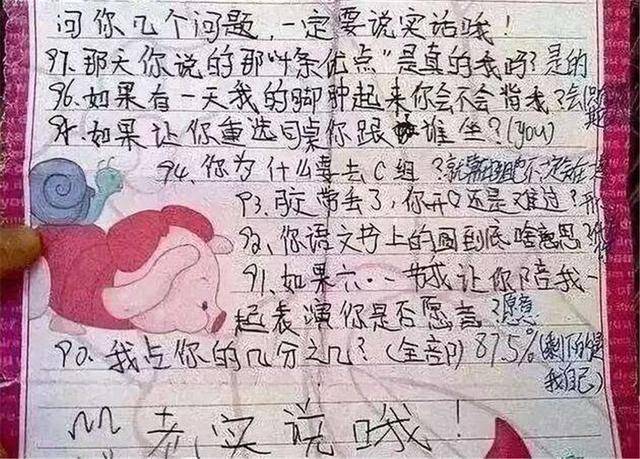 问你几个问题，一定要说实话哦！
97.那天你说的那"十条优点"是真的我吗？是的
96.如果有一天我的脚肿起来你会不会背我？会
95.如果让你重选同桌你跟谁坐？(you)
94.你为什么要去C组？就算
93.胶带丢了，你开心还是难过？
92.你语文书上的圈到底啥意思？
91.如果六·一节我让你陪我一
起表演你是否愿意？愿意
90.我占你的几分之几？(全部) 87.5%(剩下的是
我自己)
老实说哦！